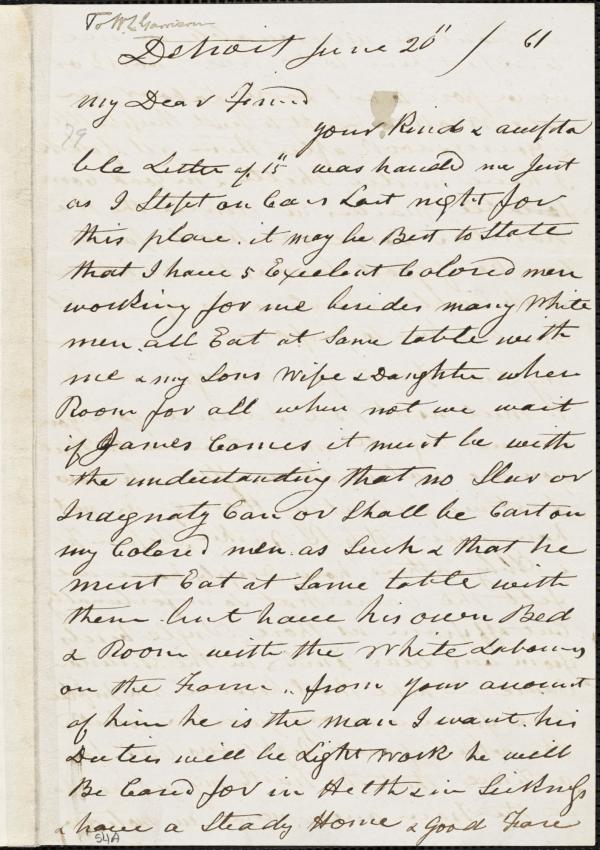 To W L Garrison
Detroit June 20" / 61
My Dear Friend
79
your Kind & accepta
ble Letter of 15" was handed me Just
as I Stept on Cars Last night for
this place. it may be Best to State
that I have 5 Excelent Colored men
working for me besides many White
men. all Eat at Same table with
me & my Sons Wife & Daughter when
Room for all when not we wait
if James Comes it must be with
the understanding that no Slur or
Indegnaty Can or Shall be Cast on
my Colored men. as Such & that he
must Eat at Same table with
them. but have his own Bed
& Room with the White Laborers
on the Farm .. from your acount
of him he is the man I want. his
Duties will be Light Work he will
Be Cared for in Helth & in Sickness
& have a Steady Home & Good Fare
54A